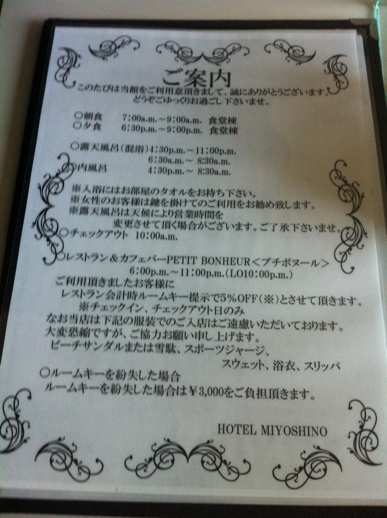 ご案内
このたびは当館をご利用意頂きまして、誠にありがとうございます。
どうぞごゆっくりお過ごし下さいませ。
○朝食　7:00a.m.～9:00a.m. 食堂棟
○夕食　6:30p.m.～9:00p.m. 食堂棟
○露天風呂(混浴)4:30p.m.～11:00p.m.
6:30a.m.～ 8:30a.m.
○内風呂　4:30p.m.～ 8:30a.m.
※入浴にはお部屋のタオルをお持ち下さい。
※女性のお客様は鍵を掛けてのご利用をお勧め致します。
※露天風呂は天候により営業時間を
変更させて頂く場合がございます。ご了承下さい。
○チェックアウト 10:00a.m.
○レストラン＆カフェバーPETIT BONHEUR＜プチボヌール＞
6:00p.m.～11:00p.m.(LO10:00p.m.)
ご利用頂きましたお客様に
レストラン会計時ルームキー提示で5%OFF(※)とさせて頂きます。
※チェックイン、チェックアウト日のみ
なお当店は下記の服装でのご入店はご遠慮いただいております。
大変恐縮ですが、ご協力お願い申し上げます。
ビーチサンダルまたは雪駄、スポーツジャージ、
スウェット、浴衣、スリッパ
○ルームキーを紛失した場合
ルームキーを紛失した場合は￥3,000をご負担頂きます。
HOTEL MIYOSHINO